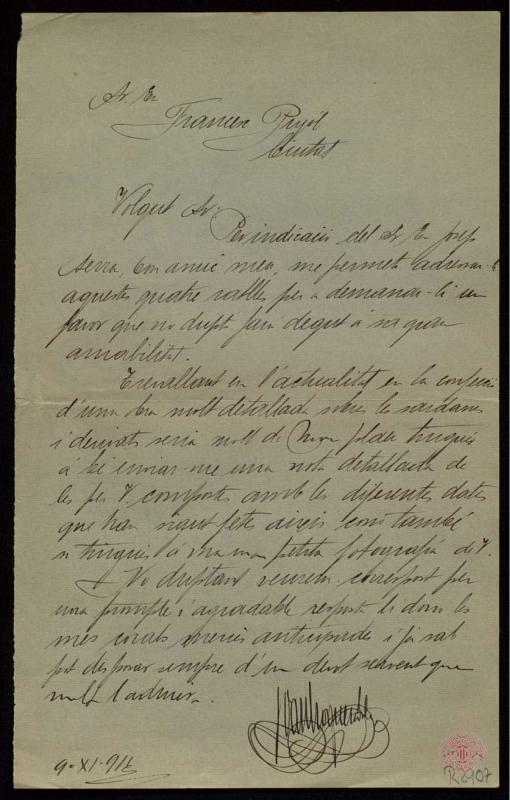 Sr. En
Francesc Pujol
Ciutat
Volgut Sr.
Per indicació del Sr. En Josep
Serra, bon amic meu, me permeto adressar-li
aquestes quatre ratlles per a demanar-li un
favor que no dupto farà degut á sa gran
amabilitat.
Trevallant en l'actualitat en la confecció
d'una obra molt detallada sobre les sardanes
i derivats seria molt de mon plau tingués
á bé enviar-me una nota detallada de
les per V. compostes amb les diferentes dates
que han sigut fetes aixís com també
si tingués á má una petita fotografia de V.
No duptant veurem correspost per
una prompte i agradable resposta li dono les
mes corals mercès anticipades i ja sab
pot disposar sempre d'un devot servent que
molt l'admira.
9-XI-916
R2907